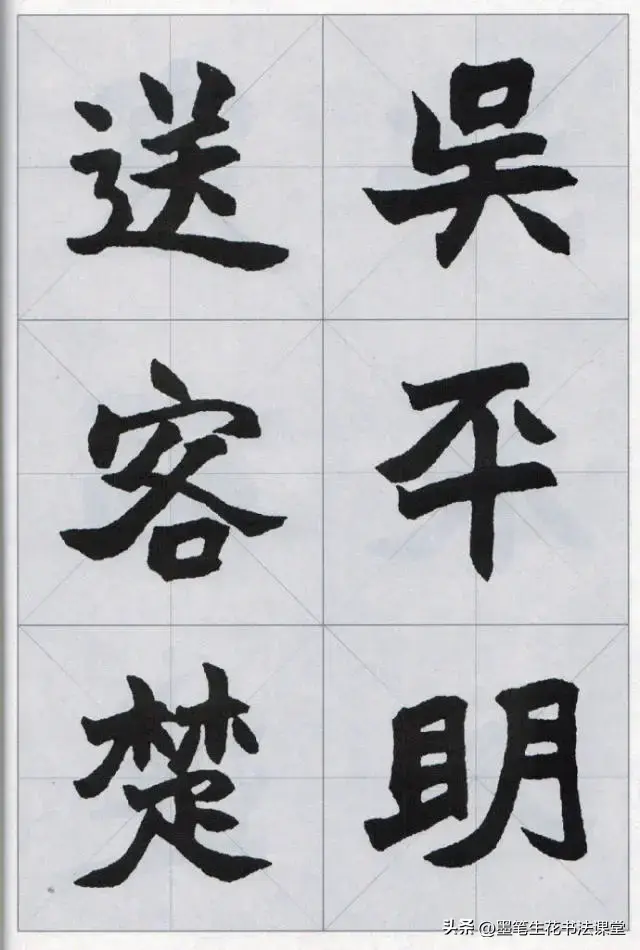 吳平明
送客楚
头条 @墨笔生花书法课堂